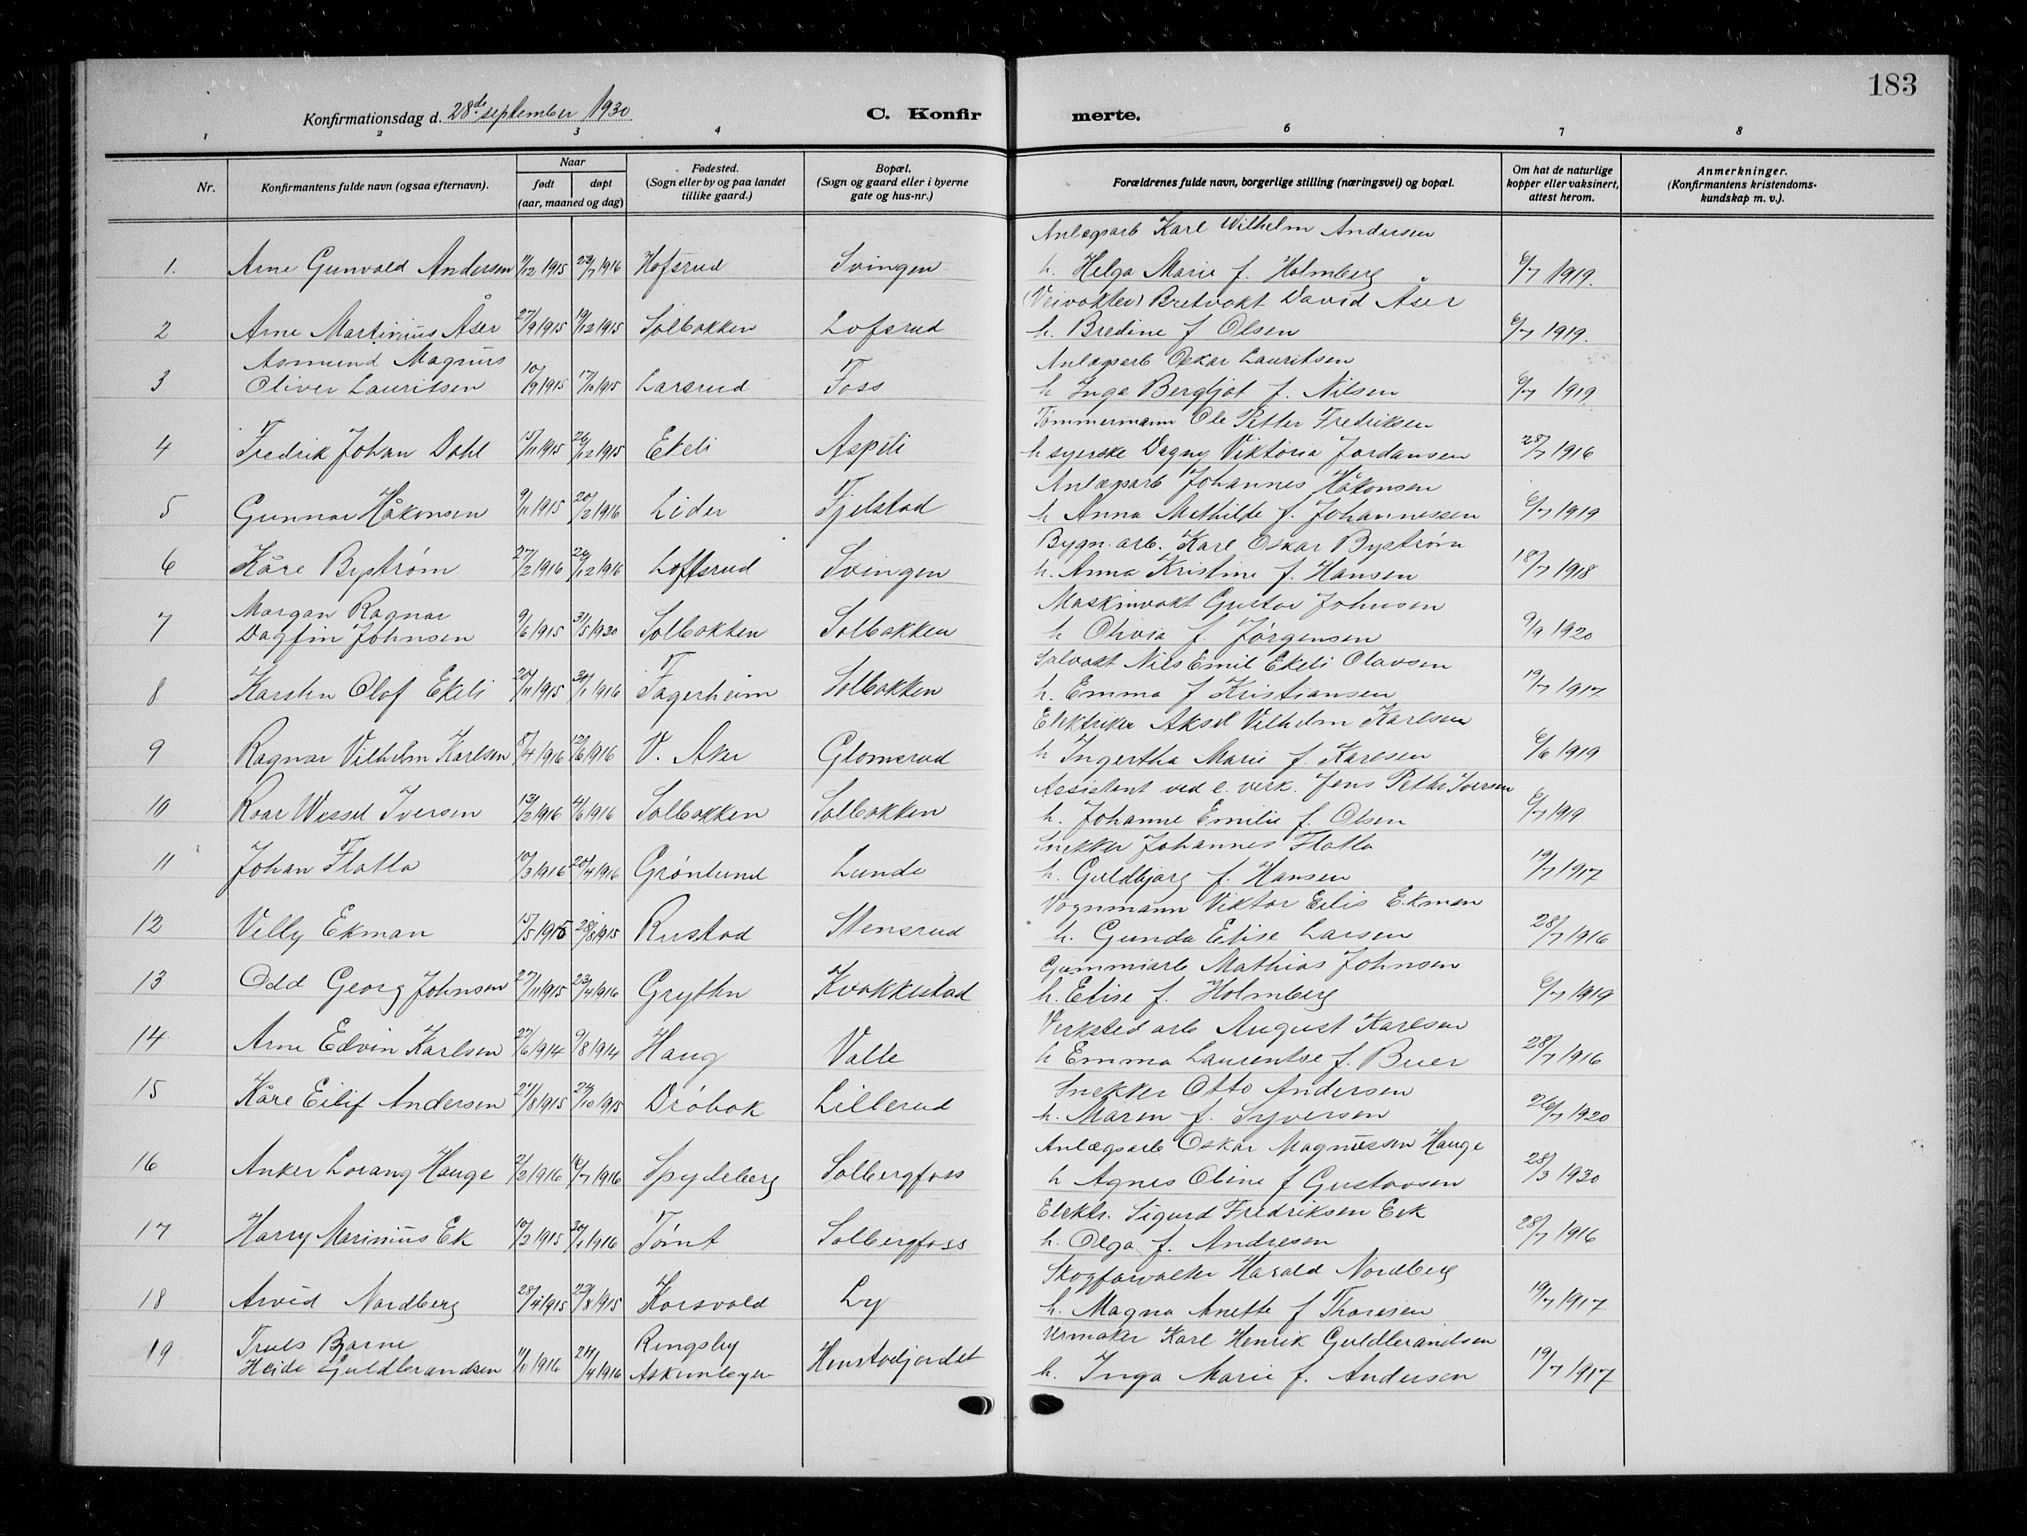 183
Konfirmationsdag d. 28de september 1930
C. Konfirmerte.
1 2 3 4 6 7 8
Nr.
Konfirmantens fulde navn (ogsaa efternavn).
Naar
født døpt
(aar, maaned og dag)
Fødested.
(Sogn eller by og paa landet
tillike gaard.)
Bopæl.
(Sogn og gaard eller i byerne
gate og hus-nr.)
Forældrenes fulde navn, borgerlige stilling (næringsvei) og bopæl.
Om hat de naturlige
kopper eller vaksinert,
attest herom.
Anmerkninger.
(Konfirmantens kristendoms-
kundskap m. v.).
Anlægsarb Karl Wilhelm Andersen
1. Arne Gunvald Andersen 11/12 1915 23/7 1916 Hofsrud Svingen h. Helga Marie f. Holmberg 6/7 1919.
(Veivokter) Bretvakt David Åser
2 Arne Martinius Åser 27/9 1915 19/12 1915 Solbakken Lofsrud h. Bredine f Olsen 6/7 1919.
Asmund Magnus Anlægsarb Oskar Lauritsen
3 Oliver Lauritsen 10/9 1915 17/10 1915 Larsrud Foss h Inga Bergljot f. Nilsen 6/7 1919
Tømmermann Ole Petter Fredriksen
4 Fredrik Johan Dahl 15/11 1915 26/12 1915 Ekeli Aspeli h syerske Dagny Viktoria Jordansen 28/7 1916
Anlægsarb Johannes Håkonsen
5 Gunnar Håkonsen 9/11 1915 20/2 1916 Lider Fjelstad h Anna Mathilde f. Johannessen 6/7 1919
Bygn. arb. Karl Oskar Bystrøm
6 Kåre Bystrøm 27/2 1916 24/12 1916 Loffsrud Svingen h. Anna Kristine f. Hansen 18/7 1918
Morgan Ragnar Maskinvakt Gustav Johnsen
7 Dagfin Johnsen 9/6 1915 31/5 1930 Solbakken Solbakken h Olivia f. Jørgensen 9/9 1920
Salvakt Nils Emil Ekeli Olavsen
8 Karsten Olof Ekeli 20/11 1915 30/1 1916 Fagerheim Solbakken h. Emma f Kristiansen 19/7 1917
Elektriker Aksel Vilhelm Karlsen
9 Ragnar Vilhelm Karlsen 8/4 1916 12/6 1916 V. Aker Glomsrud h Ingertha Marie f. Karlsen 6/6 1919
Assistant ved e. verk. Jens Petter Iversen
10 Roar Wessel Iversen 13/2 1916 4/6 1916 Solbakken Solbakken h. Johanne Emilie f. Olsen 6/7 1919
Snekker Johannes Flatla
11 Johan Flatla 10/3 1916 20/4 1916 Grønlund Lunde h. Guldbjørg f. Hansen 19/7 1917
Vognmann Viktor Eilis Ekman
12 Velly Ekman 15/5 1915 28/8 1915 Rustad Stensrud h. Gunda Elise Larsen 28/7 1916
Gummiarb Mathias Johnsen
13 Odd Georg Johnsen 27/11 1915 23/4 1916 Grythn Kvakkestad h. Elise f. Holmberg 6/7 1919
Verksted arb August Karlsen
14 Arne Edvin Karlsen 27/6 1914 9/8 1914 Haug Valle h Emma Laurentse f. Buer 28/7 1916
Snekker Otto Andersen
15 Kåre Eilif Andersen 21/8 1915 24/10 1915 Drøbak Lillerud h. Maren f. Syversen 26/7 1920
Anlægsarb Oskar Magnussen Hauge
16 Anker Lorang Hauge 2/2 1916 16/7 1916 Spydeberg Solbergfoss h Agnes Oline f Gustavsen 28/3 1930
Elektr. Sigurd Fredriksen Eek
17 Harry Marinius Ek 10/2 1915 30/1 1916 Tømt Solbergfoss h. Olga f. Andresen 28/7 1916
Skogforvalter Harald Nordberg
18 Arvid Nordberg 28/4 1915 22/8 1915 Korsvold Ly h. Magna Anette f Thoresen 19/7 1917
Truls Bjarne Ringsby Urmaker Karl Henrik Guldbrandsen
19 Heide Guldbrandsen 1/1 1916 24/4 1916 Askimbyen Henstadjordet h. Inga Marie f. Andersen 19/7 1917